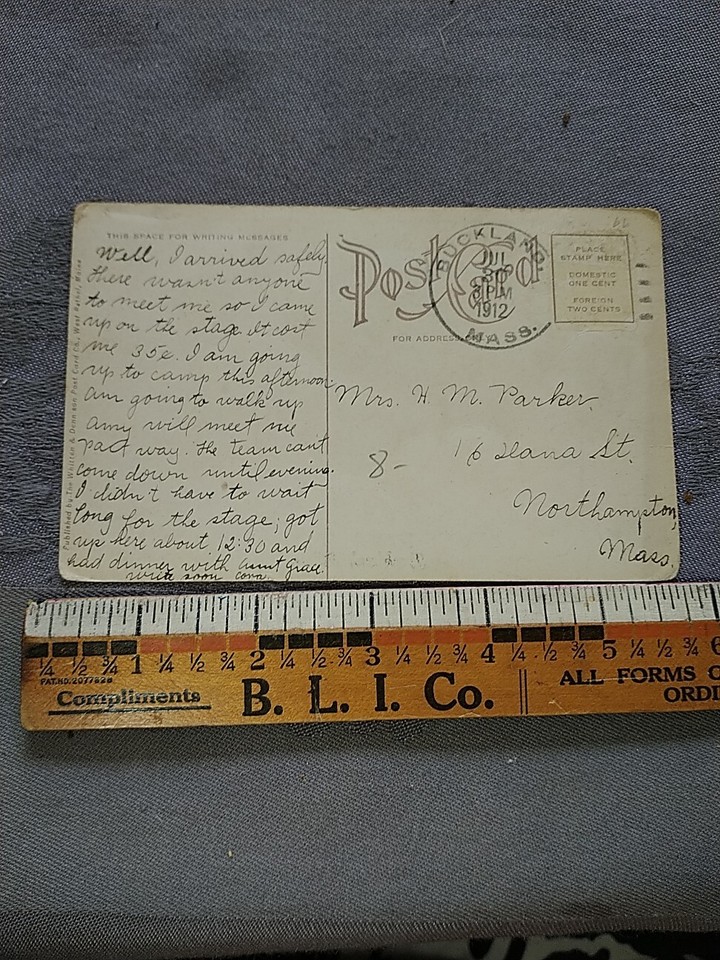 THIS SPACE FOR WRITING MESSAGES
Well, I arrived safely.
There wasn't anyone
to meet me so I came
up on the stage. It cost
me 35¢. I am going
up to camp this afternoon
am going to walk up
amy will meet me
part way. The team can't
come down until evening.
I didn't have to wait
long for the stage; got
up here about 12:30 and
had dinner with aunt Grace.
write soon
Post Card
MASS.
JUL
30
8 PM
1912
PLACE
STAMP HERE
DOMESTIC
ONE CENT
FOREIGN
TWO CENTS
FOR ADDRESS
Mrs. H. M. Parker
16 Dana St.
8-
Northampton,
Mass.
Published by The & Post Card Co., West Maine
1/4 1/2 3/4 1 1/4 1/2 3/4 2 1/4 1/2 3/4 3 1/4 1/2 3/4 4 1/4 1/2 3/4 5 1/4 1/2 3/4 6
PAT. NO. 2077826
Compliments
B. L. I. Co.
ALL FORMS O
ORDI